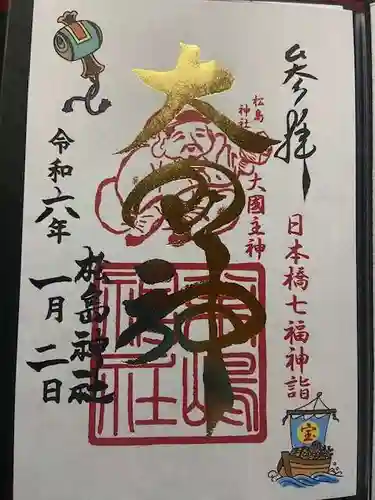 参拝
日本橋七福神詣
松島神社
大國主神
大国神
松嶋神社
松島神社
令和六年一月二日
宝